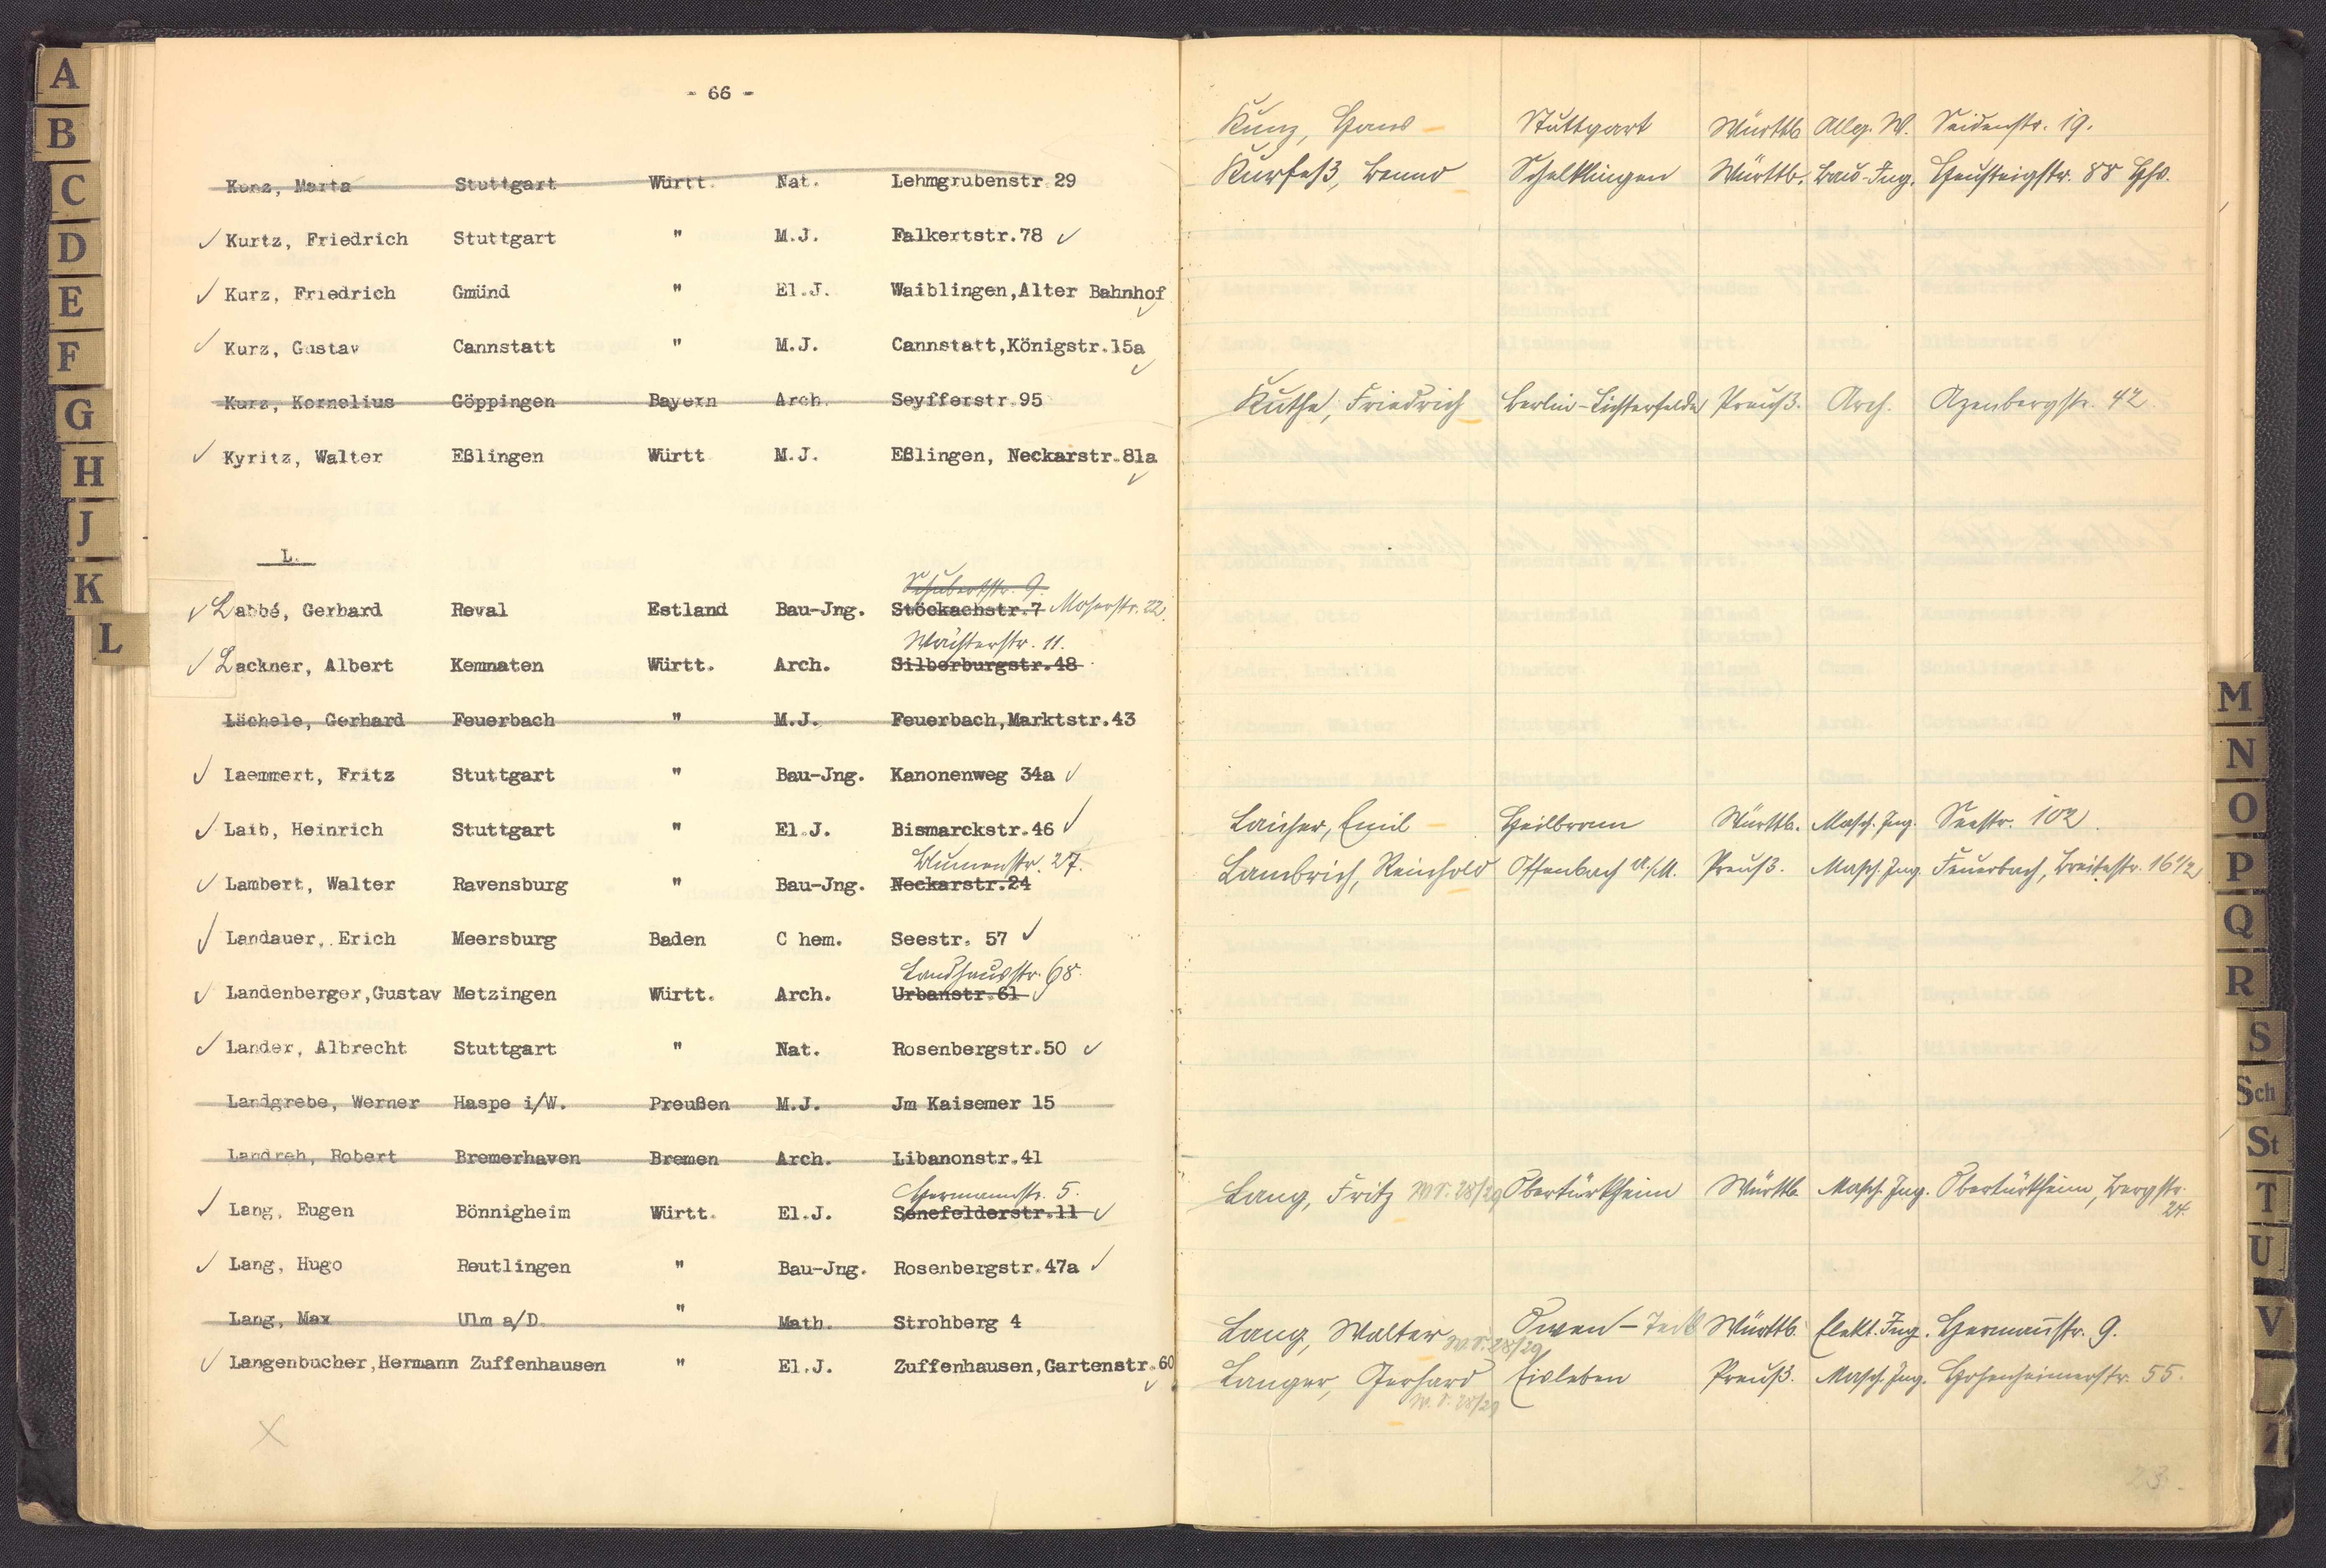 A
B
C
D
E
F
G
H
J
K
L
- 66 -
Kunz, Marta Stuttgart Württ. Nat. Lehmgrubenstr.29
Kurtz, Friedrich Stuttgart " M.J. Falkertstr.78
Kurz, Friedrich Gmünd " El.J. Waiblingen,Alter Bahnhof
Kurz, Gustav Cannstatt " M.J. Cannstatt,Königstr.15a
Kurz, Kornelius Göppingen Bayern Arch. Seyfferstr.95
Kyritz, Walter Eßlingen Württ. M.J. Eßlingen, Neckarstr.81a
L.
Schubertstr. 9.
Labbé, Gerhard Reval Estland Bau-Jng. Stöckachstr.7 Moserstr. 22.
Wächterstr. 11.
Lackner, Albert Kemnaten Württ. Arch. Silberburgstr.48
Lächele, Gerhard Feuerbach " M.J. Feuerbach,Marktstr.43
Laemmert, Fritz Stuttgart " Bau-Jng. Kanonenweg 34a
Laib, Heinrich Stuttgart " El.J. Bismarckstr.46
Blumenstr. 27.
Lambert, Walter Ravensburg " Bau-Jng. Neckarstr.24
Landauer, Erich Meersburg Baden C hem. Seestr. 57
Landhausstr. 68.
Landenberger,Gustav Metzingen Württ. Arch. Urbanstr.61
Lander, Albrecht Stuttgart " Nat. Rosenbergstr.50
Landgrebe, Werner Haspe i/W. Preußen M.J. Jm Kaisemer 15
Landreh, Robert Bremerhaven Bremen Arch. Libanonstr.41
Hermannstr. 5.
Lang, Eugen Bönnigheim Württ. El.J. Senefelderstr.11
Lang, Hugo Reutlingen " Bau-Jng. Rosenbergstr.47a
Lang, Max Ulm a/D. " Math. Strohberg 4
Langenbucher,Hermann Zuffenhausen " El.J. Zuffenhausen,Gartenstr.60
Kunz, Hans Stuttgart Württb. Allg. W. Seidenstr. 19.
Kurfeß, Benno Schelklingen Württb. Bau-Ing. Heusteigstr. 88 Hhs.
Kuthe, Friedrich Berlin-Lichterfelde Preuß. Arch. Azenbergstr. 42
Laicher, Emil Heilbronn Württb. Masch. Ing. Seestr. 102.
Lambrich, Reinhold Offenbach a./M. Preuß. Masch. Ing. Feuerbach, Breitestr. 16 1/2
Lang, Fritz W.S. 28/29 Obertürkheim Württb. Masch. Ing. Obertürkheim, Bergstr.
24.
Lang, Walter W.S. 28/29 Owen-Teck Württb. Elekt. Ing. Hermannstr. 9.
Langer, Gerhard Eisleben Preuß. Masch. Ing. Hohenheimerstr. 55.
W.S. 28/29
23.
M
N
O
P
Q
R
S
Sch
St
T
U
V
Z